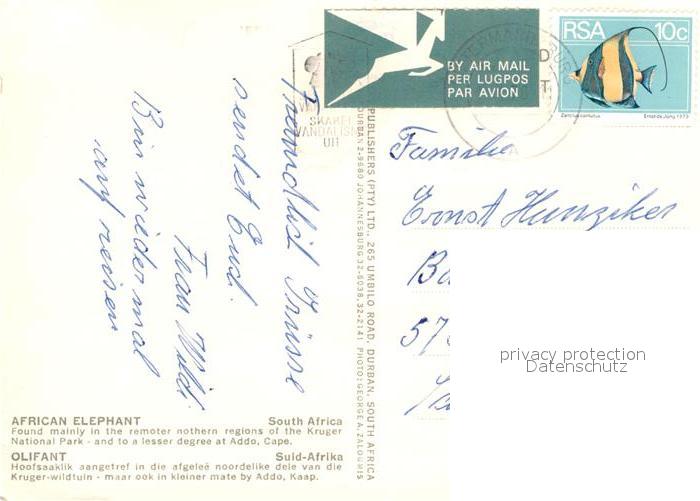 BY AIR MAIL
PER LUGPOS
PAR AVION
RSA 10c
Zanclus cornutus Ernst de Jong 1973
SKAKEL
VANDALISME
UIT
Freundlich Grüsse
sendet Euch
Frau Wildi
Bin wieder mal
auf reisen
PUBLISHERS (PTY) LTD., 265 UMBILO ROAD, DURBAN, SOUTH AFRICA
DURBAN 2-9680 JOHANNESBURG 32-6038, 32-2141 PHOTO: GEORGE A. ZALOUMIS
Familie
Ernst Hunziker
Ba
57
privacy protection
Datenschutz
AFRICAN ELEPHANT South Africa
Found mainly in the remoter nothern regions of the Kruger
National Park - and to a lesser degree at Addo, Cape.
OLIFANT Suid-Afrika
Hoofsaaklik aangetref in die afgeleë noordelike dele van die
Kruger-wildtuin - maar ook in kleiner mate by Addo, Kaap.